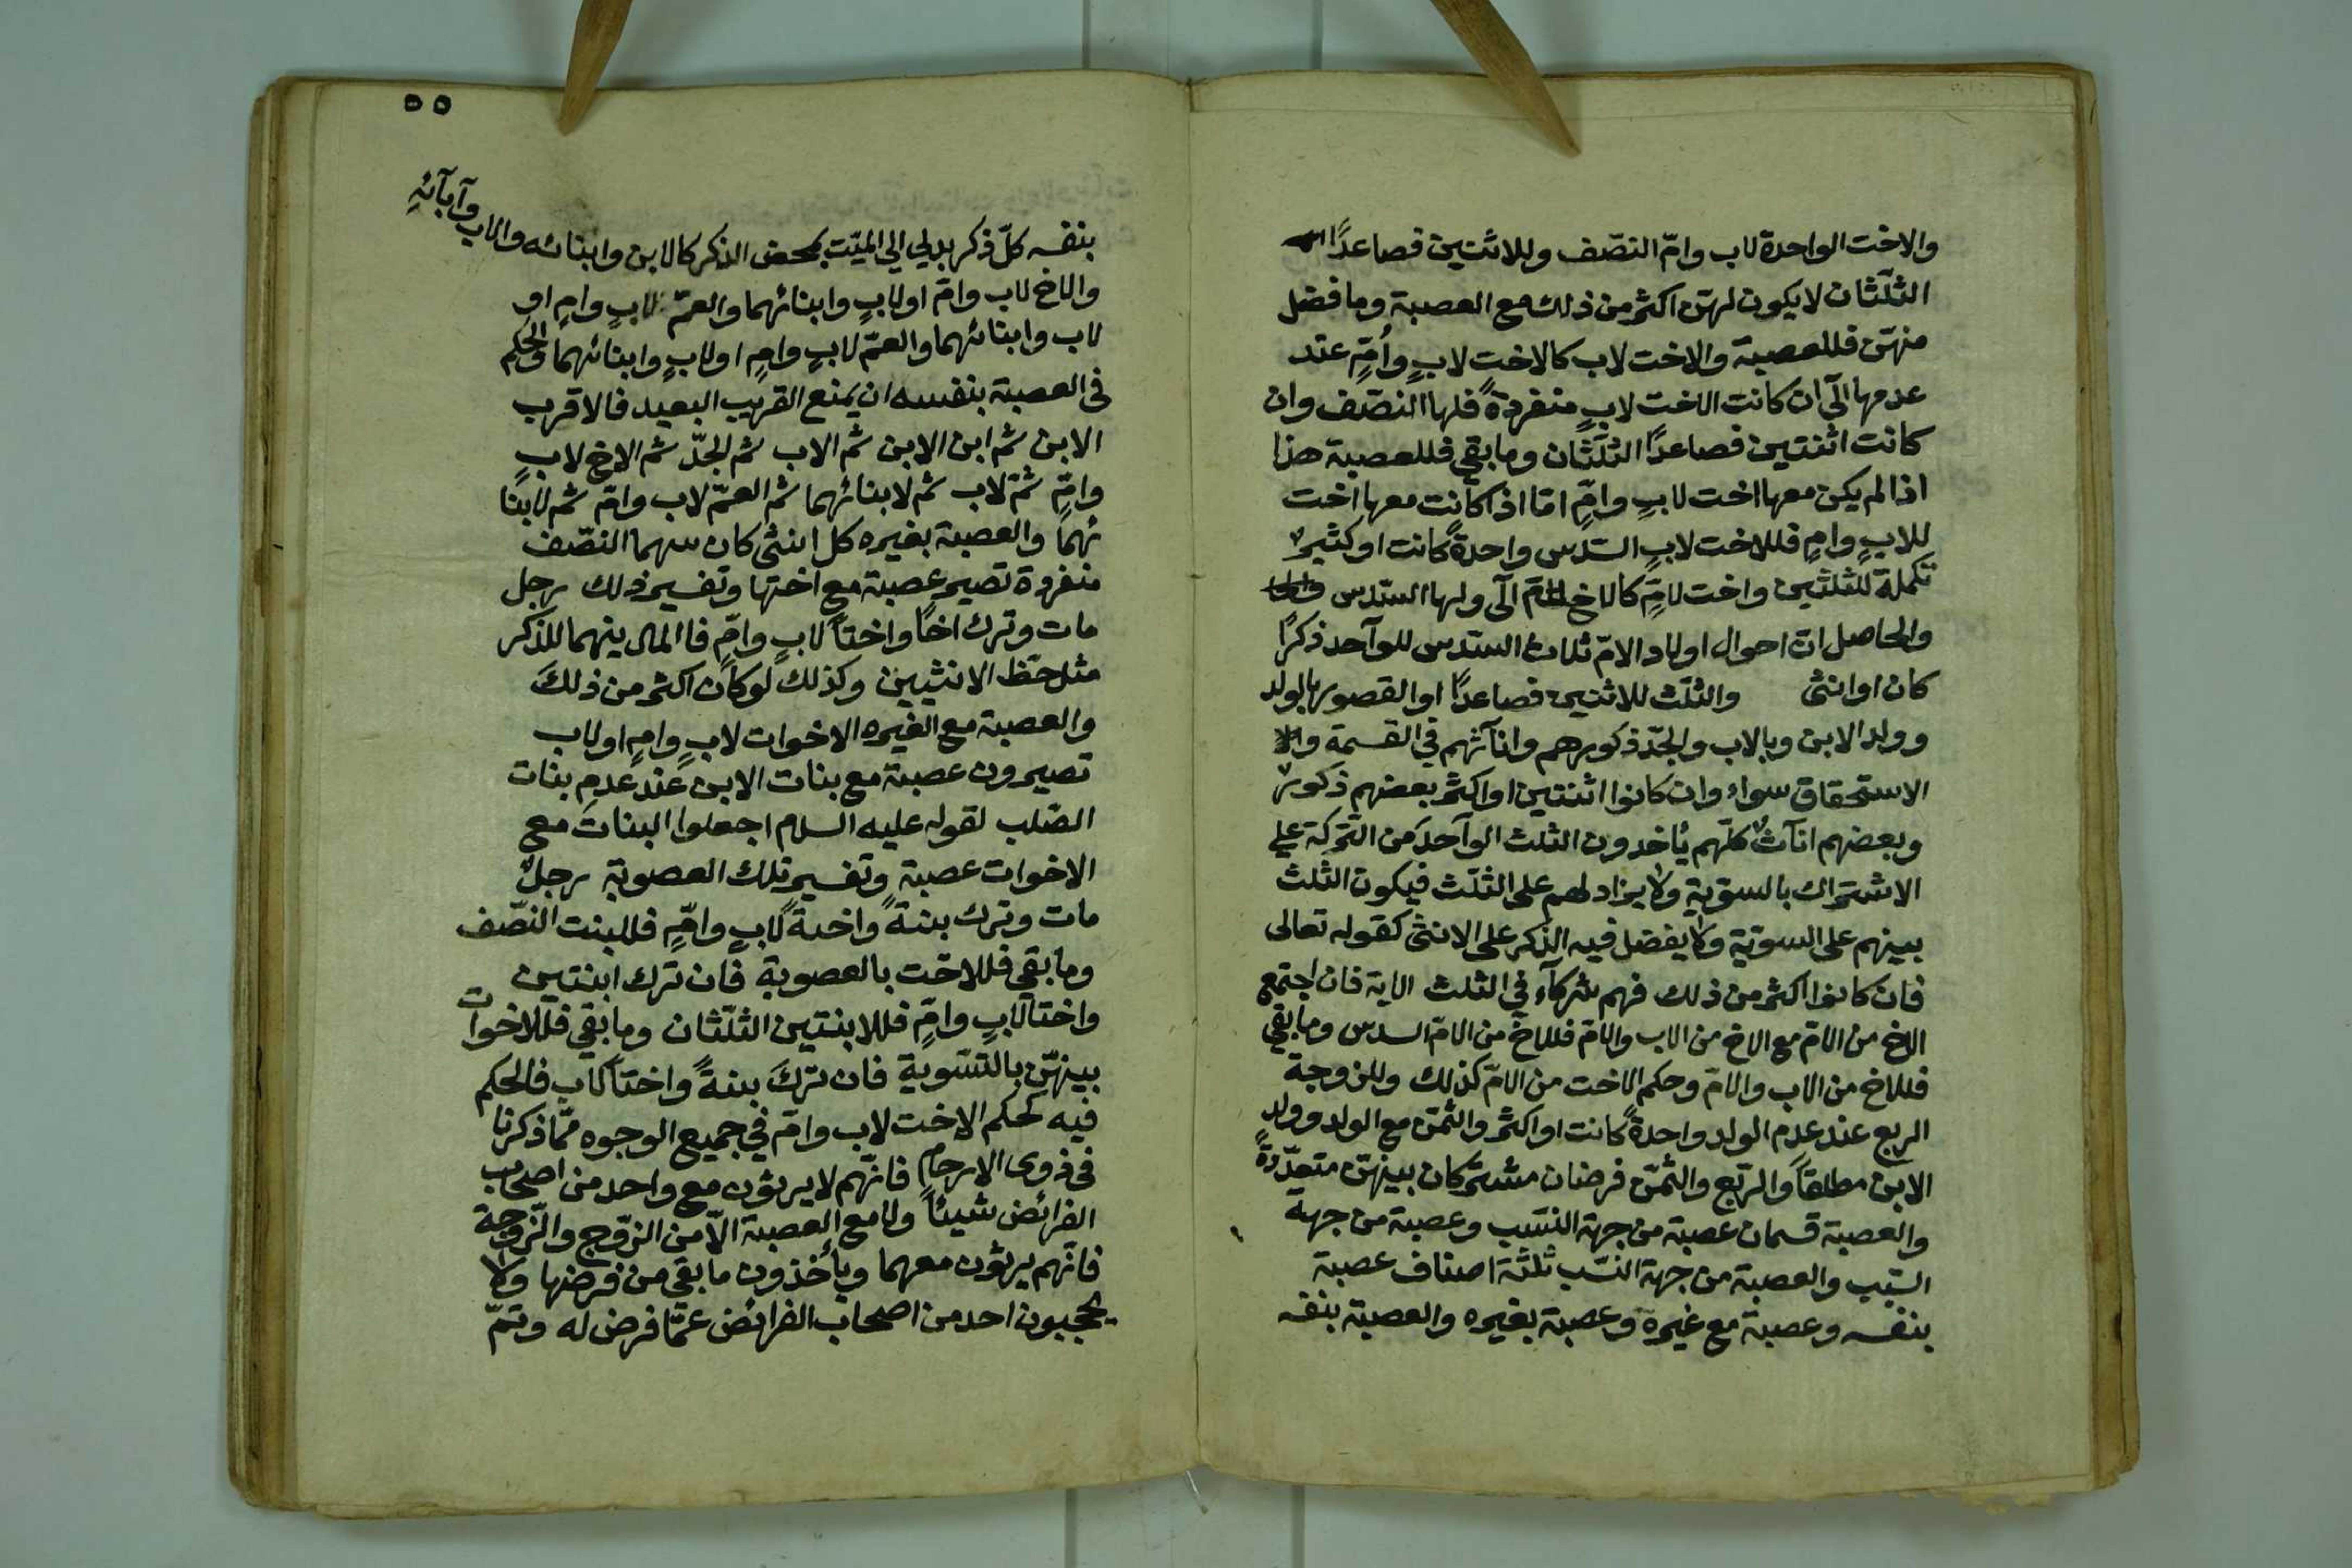 والاخت الواحدة لاب وامّ النصّف وللاثنتين فصاعدًا
الثلّثان لا يكون لهنّ اكثر من ذلك مع العصبة وما فضل
منهنّ فللعصبة والاخت لاب كالاخت لابٍ واُمّ عند
عدمها الّى ان كانت الاخت لابٍ منفردةً فلها النصّف وان
كانت اثنتين فصاعدًا الثلّثان وما بقي فللعصبة هذا
اذا لم يكن معها اخت لابٍ وامّ امّا اذا كانت معها اخت
للابٍ وامٍ فللاخت لابٍ السّدس واحدةً كانت او كثيرٌ
تكملة للثلثين واخت لامٍّ كالاخ للامّ الّى ولها السّدس
والحاصل انّ احوال اولاد الامّ ثلاث السّدس للوآحد ذكرًا
كان او انثى والثلّث للاثنين فصاعدًا او القصور بالولد
وولد الابن وبالاب والجدّ ذكورهم واناثهم في القسمة والا
الاستحقاق سواء وان كانوا اثنتين او اكثر بعضهم ذكورٌ
وبعضهم اناثٌ كلّهم يأخدون الثلث الوآحد من التركة على
الاشتراك بالسّويّة ولا يزاد لهم على الثلّث فيكون الثلث
بينهم على السويّة ولا يفضل فيه الذكر على الانثى كقوله تعالى
فان كانوا اكثر من ذلك فهم شركآء في الثلث الاية فان اجتمع
الاخ من الامّ مع الاخ من الاب والامّ فللاخ من الامّ السدس وما بقي
فللاخ من الاب والامّ وحكم الاخت من الامّ كذلك وللزوجة
الربع عند عدم الولد واحدةً كانت او اكثر والثمّن مع الولد وولد
الابن مطلقاً والربّع والثمّن فرضان مشتركان بينهنّ متعدّدةً
والعصبة قسمان عصبة من جهة النسّب وعصبة من جهة
السّبب والعصبة من جهة النسّب ثلثة اصناف عصبة
بنفسه وعصبة مع غيره وعصبة بغيره والعصبة بنفسه
٥٥
بنفسه كلّ ذكر يدلي الي الميّت بمحض الذكر كالابن وابنائه والاب وآبآئهِ
والاخ لاب وامّ او لابٍ وابنائهما والعمّ لابٍ وامٍ او
لاب وابنائهما والعمّ لابٍ وامٍ او لابٍ وابنائهما والحكم
في العصبة بنفسه ان يمنع القريب البعيد فالاقرب
الابن ثم ابن الابن ثم الاب ثم الجدّ ثم الاخ لابٍ
وامّ ثمّ لاب ثم لابنائهما ثم العمّ لاب وامّ ثم لابنا
ئهما والعصبة بغيره كل انثى كان سهما النصّف
منفردة تصير عصبة مع اختها وتفسير ذلك رجل
مات وترك اخًا واختاً لابٍ وامٍّ فاالمال بينهما للذكر
مثل حظّ الانثيين وكذلك لو كان اكثر من ذلك
والعصبة مع الغيره الاخوات لابٍ وامٍ او لاب
تصيرون عصبة مع بنات الابن عند عدم بنات
الصّلب لقوله عليه السلام اجعلوا البنات مع
الاخوات عصبة وتفسير تلك العصوبة رجلٌ
مات وترك بنةً واخةً لابٍ وامّ فللبنت النصّف
وما بقي فللاخت بالعصوبة فان ترك ابنتين
واختا لابٍ وامٍّ فللابنتين الثلّثان وما بقي فللاخوات
بينهنّ بالتسّوية فان تركَ بنةً واختاً لاب فالحكم
فيه كحكم الاخت لاب وامّ في جميع الوجوه ممّا ذكرنا
في ذوى الارحام فانّهم لا يرثون مع واحد من اصحاب
الفرائض شيئاً ولا مع العصبة الاّ من الزوّج والزّوجة
فانّهم يرثون معهما ويأخذون ما بقي من فرضها ولا
يحجبون احد من اصحاب الفرائض عمّا فرض له وتمّ